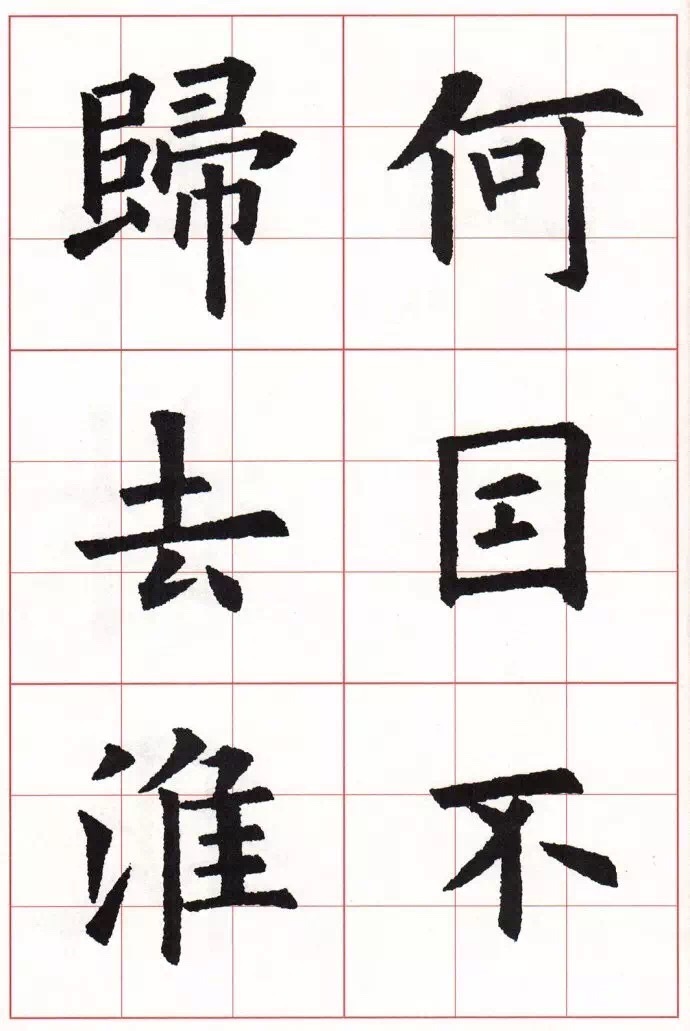 何囙不
歸去淮